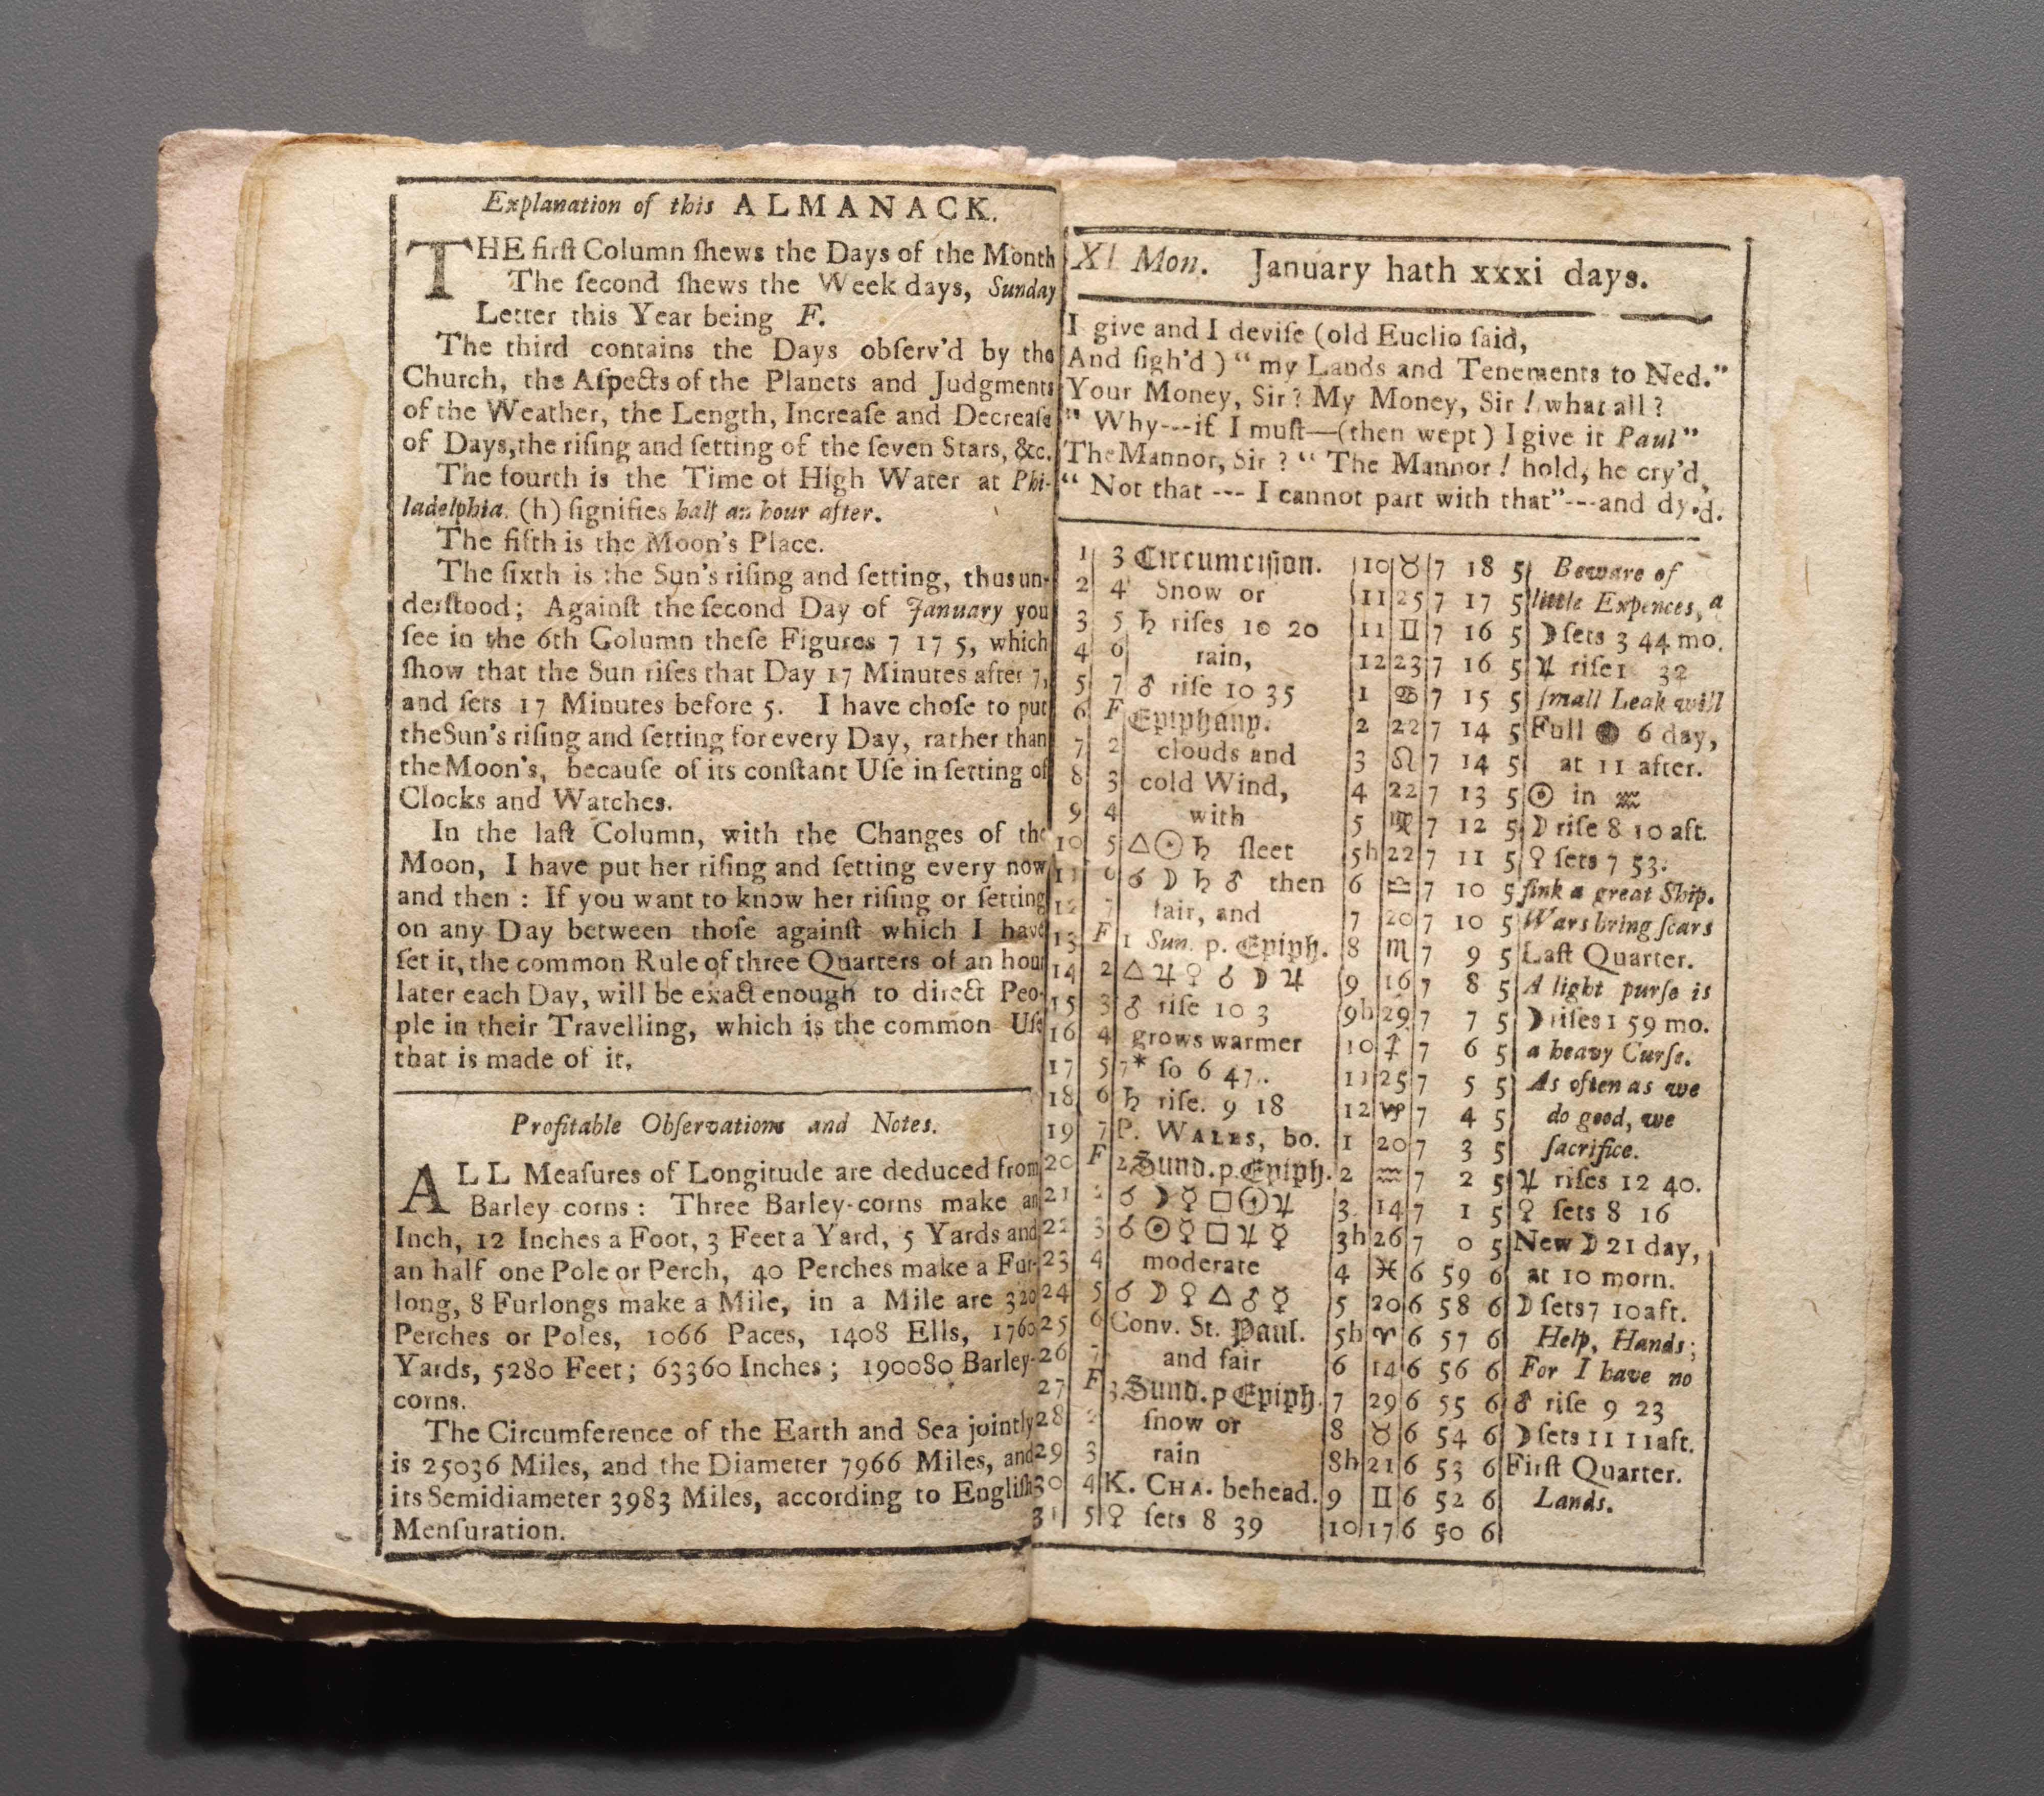 Explanation of this ALMANACK.
THE firſt Column ſhews the Days of the Month
The ſecond ſhews the Week days, Sunday
Letter this Year being F.
The third contains the Days obſerv'd by the
Church, the Aſpects of the Planets and Judgments
of the Weather, the Length, Increaſe and Decreaſe
of Days, the riſing and ſetting of the ſeven Stars, &c.
The fourth is the Time of High Water at Phi-
ladelphia. (h) ſignifies half an hour after.
The fifth is the Moon's Place.
The ſixth is the Sun's riſing and ſetting, thus un-
derſtood; Againſt the ſecond Day of January you
ſee in the 6th Column theſe Figures 7 17 5, which
ſhow that the Sun riſes that Day 17 Minutes after 7,
and ſets 17 Minutes before 5. I have choſe to put
the Sun's riſing and ſetting for every Day, rather than
the Moon's, becauſe of its conſtant Uſe in ſetting of
Clocks and Watches.
In the laſt Column, with the Changes of the
Moon, I have put her riſing and ſetting every now
and then : If you want to know her riſing or ſetting
on any Day between thoſe againſt which I have
ſet it, the common Rule of three Quarters of an hour
later each Day, will be exact enough to direct Peo-
ple in their Travelling, which is the common Uſe
that is made of it.
Profitable Obſervations and Notes.
ALL Meaſures of Longitude are deduced from
Barley corns : Three Barley-corns make an
Inch, 12 Inches a Foot, 3 Feet a Yard, 5 Yards and
an half one Pole or Perch, 40 Perches make a Fur-
long, 8 Furlongs make a Mile, in a Mile are 320
Perches or Poles, 1066 Paces, 1408 Ells, 1760
Yards, 5280 Feet; 63360 Inches; 190080 Barley-
corns.
The Circumference of the Earth and Sea jointly
is 25036 Miles, and the Diameter 7966 Miles, and
its Semidiameter 3983 Miles, according to Engliſh
Menſuration.
XI Mon. January hath xxxi days.
I give and I deviſe (old Euclio ſaid,
And ſigh'd) “my Lands and Tenements to Ned.”
Your Money, Sir? My Money, Sir! what all?
“ Why---if I muſt—(then wept) I give it Paul”
The Mannor, Sir? “ The Mannor! hold, he cry'd,
“ Not that --- I cannot part with that”---and dy'd.
1 3 Circumciſion. 10 ♉ 7 18 5 Beware of
2 4 Snow or 11 25 7 17 5 little Expences, a
3 5 ♄ riſes 10 20 11 ♊ 7 16 5 ☽ ſets 3 44 mo.
4 6 rain, 12 23 7 16 5 ♃ riſe 1 32
5 7 ♂ riſe 10 35 1 ♋ 7 15 5 ſmall Leak will
6 F Epiphany. 2 22 7 14 5 Full ● 6 day,
7 2 clouds and 3 ♌ 7 14 5 at 11 after.
8 3 cold Wind, 4 22 7 13 5 ☉ in ♒
9 4 with 5 ♍ 7 12 5 ☽ riſe 8 10 aft.
10 5 △ ☉ ♄ ſleet 5h 22 7 11 5 ♀ ſets 7 53.
11 6 ☌ ☽ ♄ ♂ then 6 ♎ 7 10 5 ſink a great Ship.
12 7 fair, and 7 20 7 10 5 Wars bring ſcars
13 F 1 Sun. p. Epiph. 8 ♏ 7 9 5 Laſt Quarter.
14 2 △ ♃ ♀ ☌ ☽ ♃ 9 16 7 8 5 A light purſe is
15 3 ♂ riſe 10 3 9h 29 7 7 5 ☽ riſes 1 59 mo.
16 4 grows warmer 10 ♐ 7 6 5 a heavy Curſe.
17 5 7* ſo 6 47. 11 25 7 5 5 As often as we
18 6 ♄ riſe. 9 18 12 ♑ 7 4 5 do good, we
19 7 P. WALES, bo. 1 20 7 3 5 ſacrifice.
20 F 2 Sund. p. Epiph. 2 ♒ 7 2 5 ♃ riſes 12 40.
21 2 ☌ ☽ ☿ □ ☉ ♃ 3 14 7 1 5 ♀ ſets 8 16
22 3 ☌ ☉ ☿ □ ♃ ☿ 3h 26 7 0 5 New ☽ 21 day,
23 4 moderate 4 ♓ 6 59 6 at 10 morn.
24 5 ☌ ☽ ♀ △ ♂ ☿ 5 20 6 58 6 ☽ ſets 7 10 aft.
25 6 Conv. St. Paul. 5h ♈ 6 57 6 Help, Hands;
26 7 and fair 6 14 6 56 6 For I have no
27 F 3 Sund. p Epiph. 7 29 6 55 6 ♂ riſe 9 23
28 2 ſnow or 8 ♉ 6 54 6 ☽ ſets 11 11 aft.
29 3 rain 8h 21 6 53 6 Firſt Quarter.
30 4 K. CHA. behead. 9 ♊ 6 52 6 Lands.
31 5 ♀ ſets 8 39 10 17 6 50 6